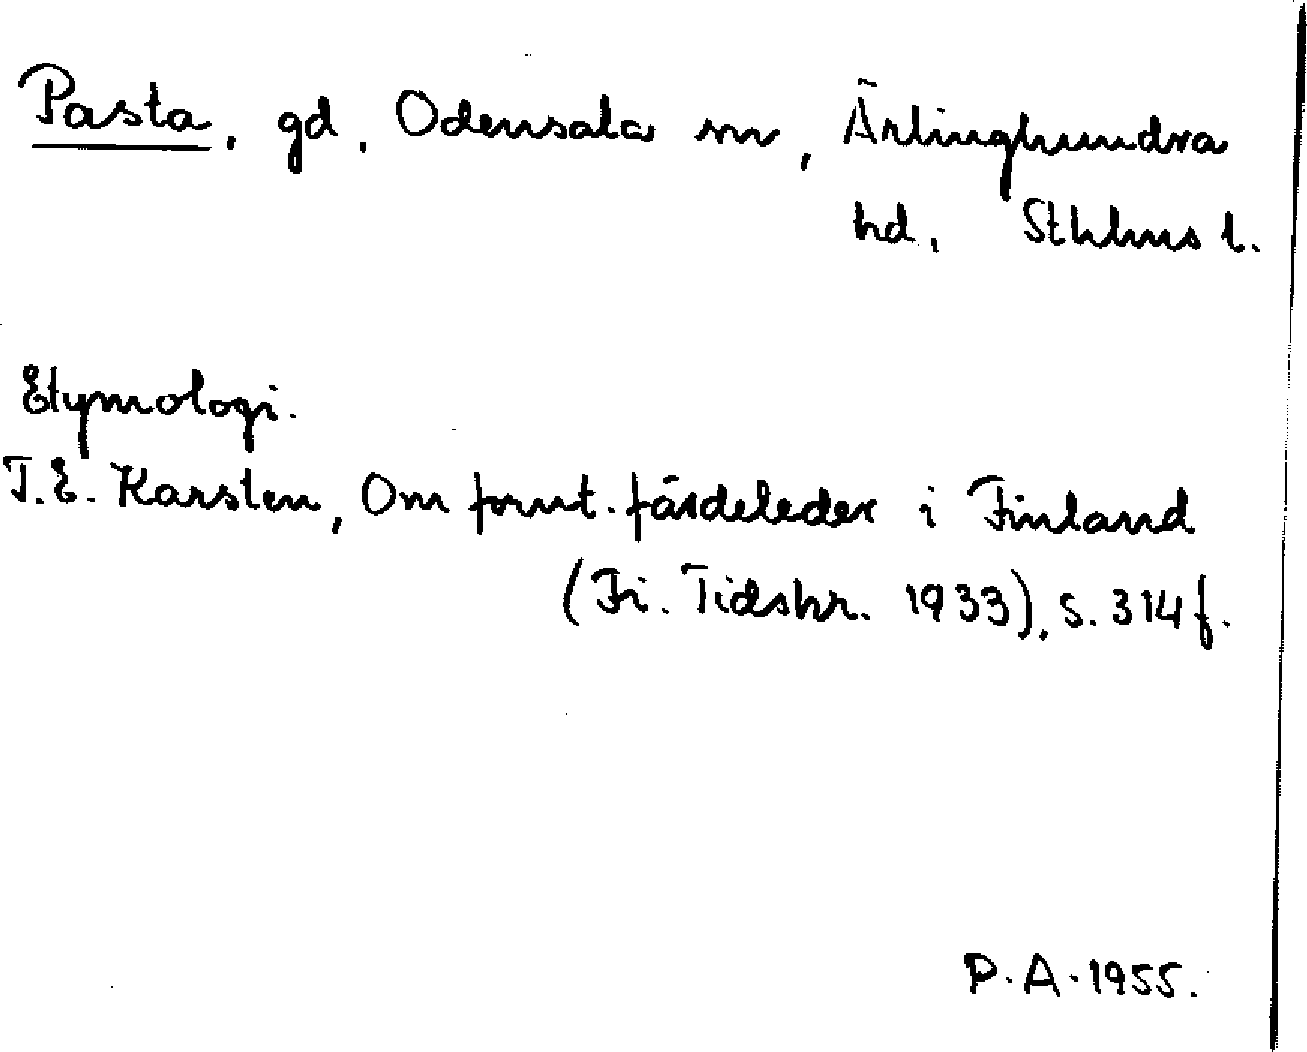 Pasta, gd, Odensala sn, Ärlinghundra
hd, Sthlms l.
Etymologi.
T.E. Karsten, Om fornt. färdeleder i Finland
(Fi. Tidskr. 1933), s. 314 f.
P.A. 1955.